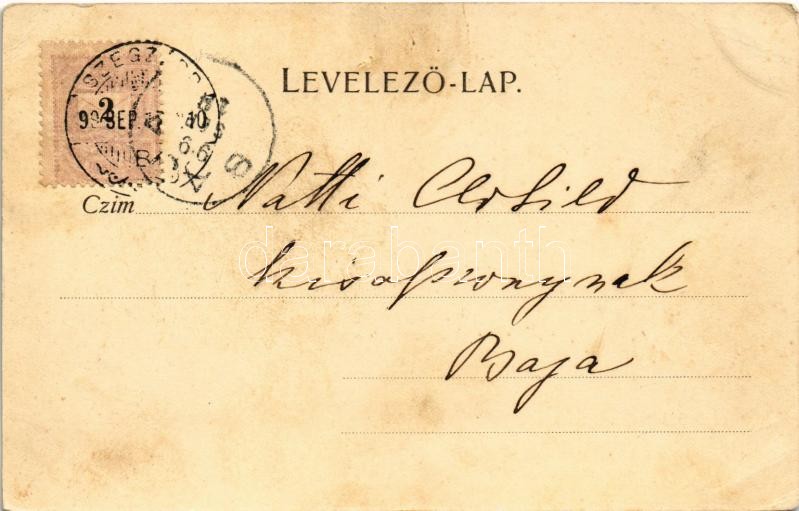 LEVELEZŐ-LAP.
SZEGZÁRD
2
99 SEP.
Czím Natti Clotild
kisasszonynak
Baja
darabanth